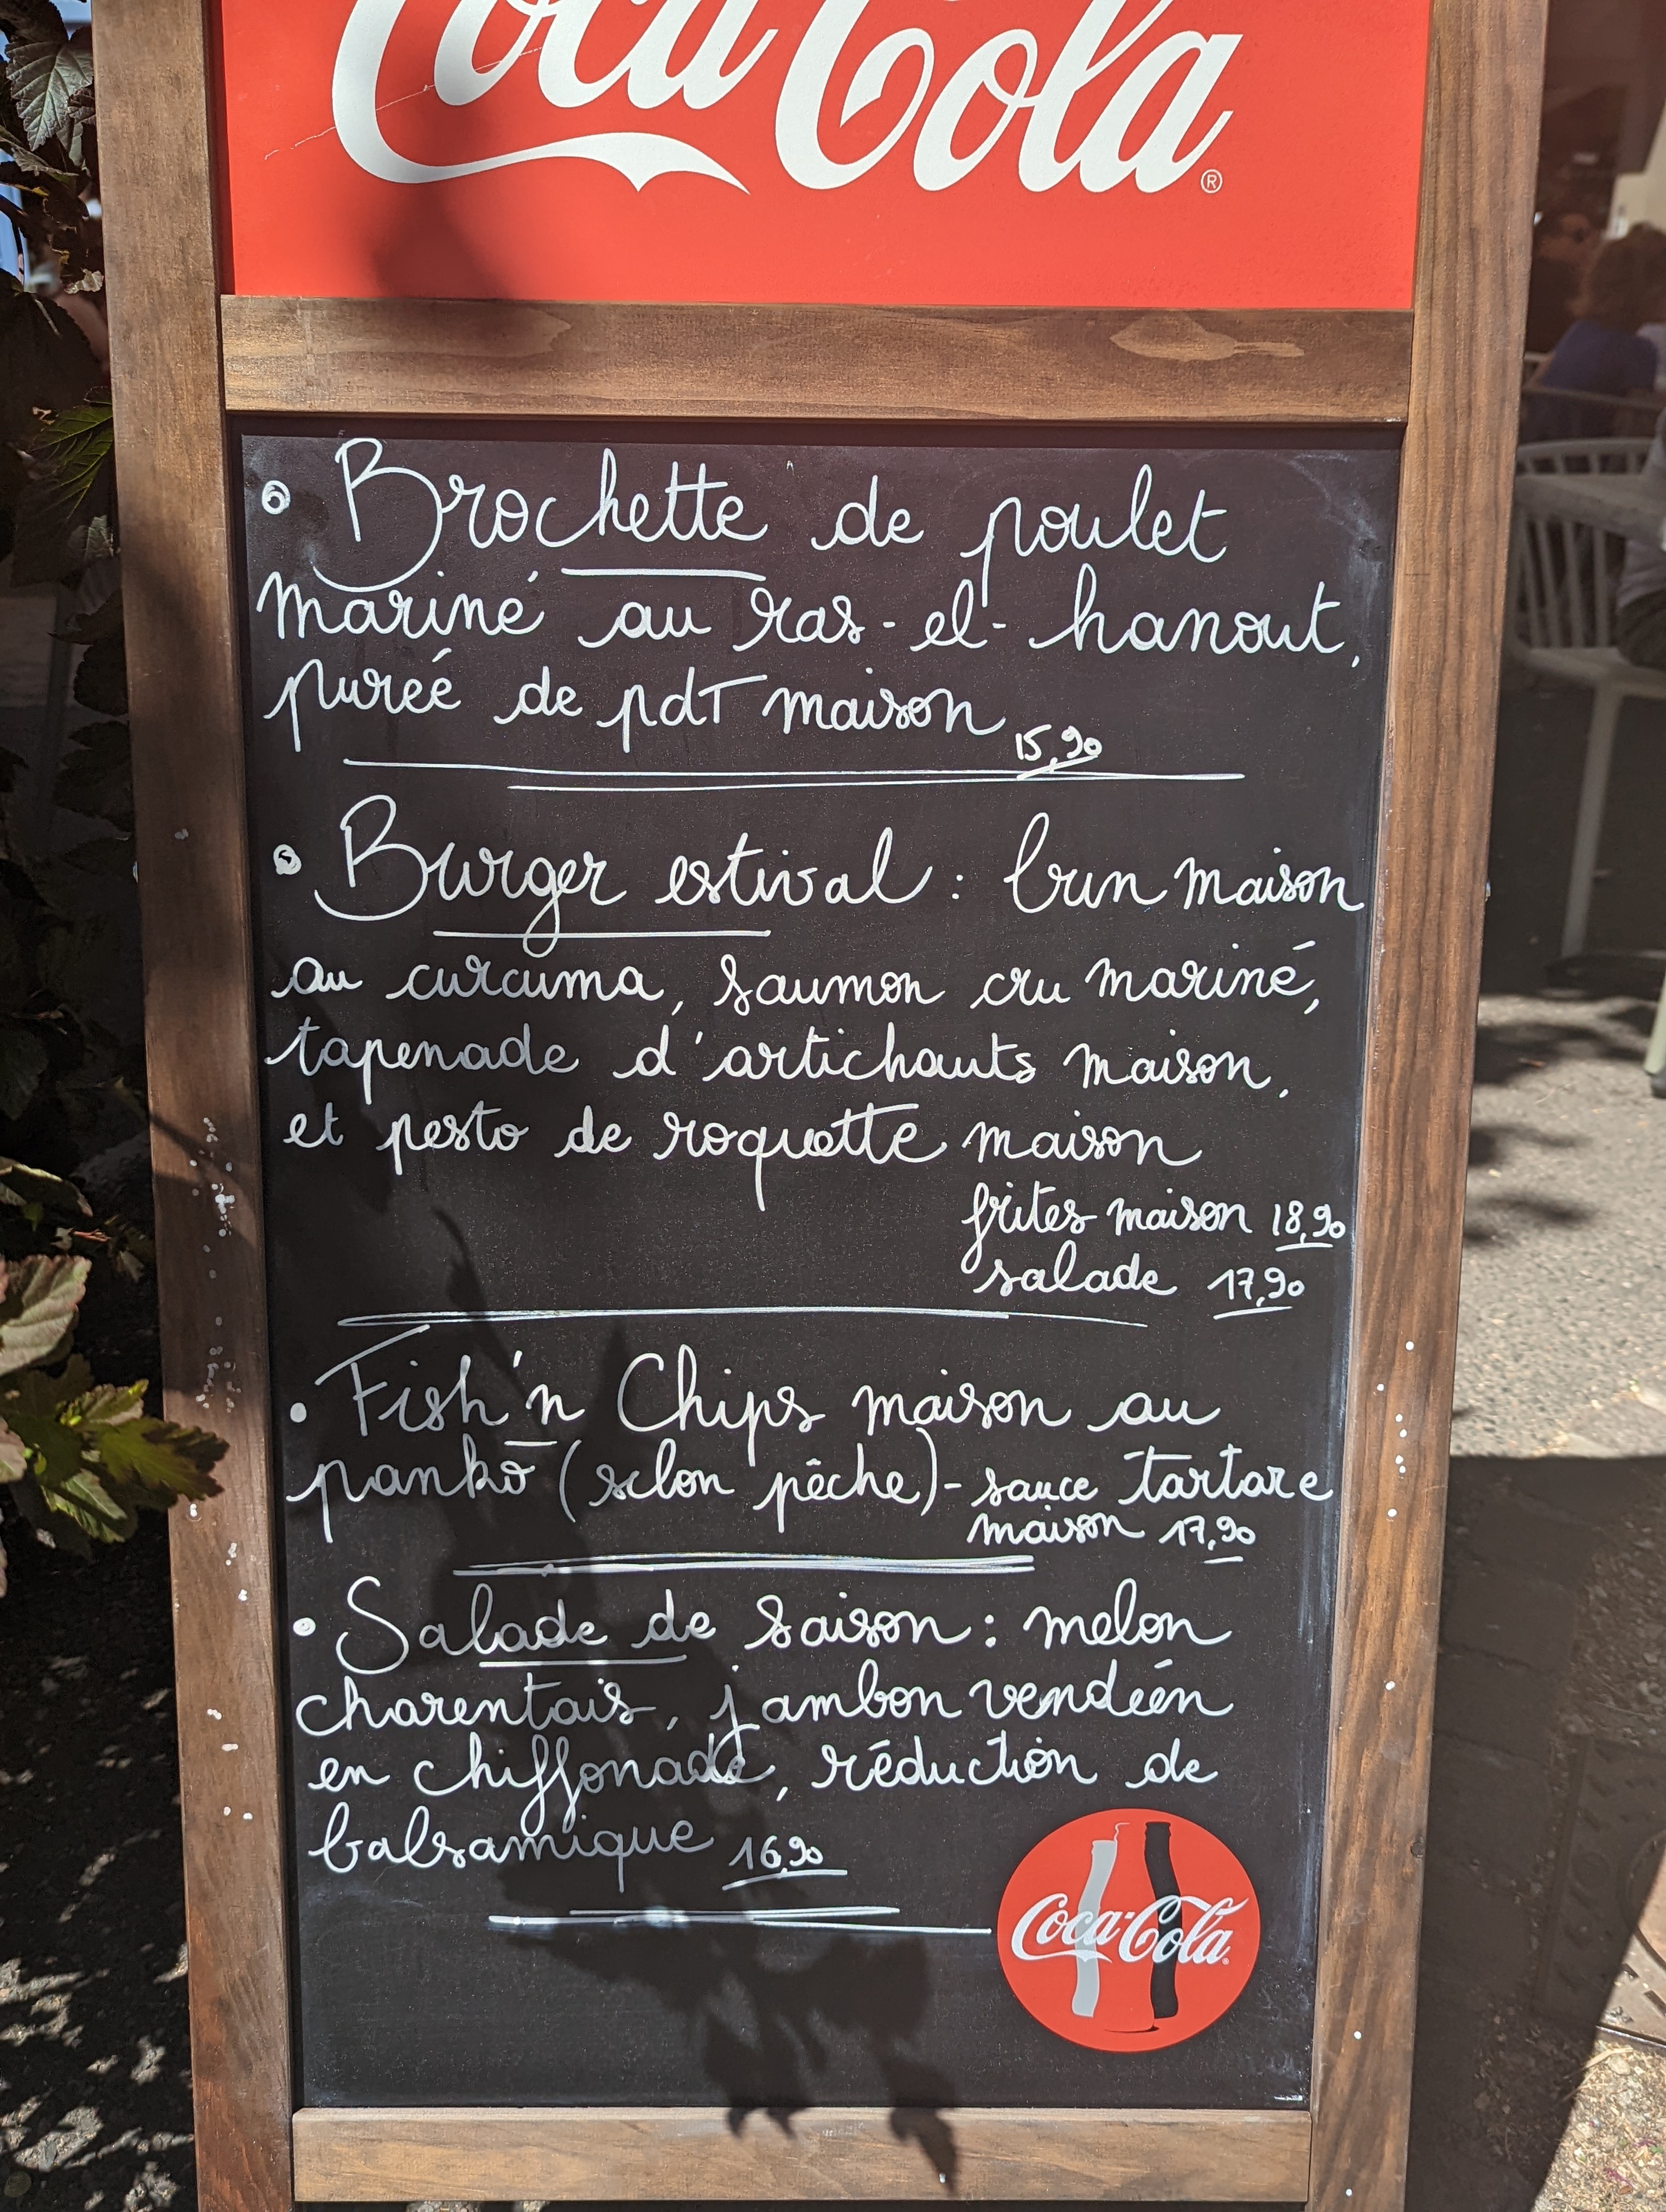 Coca-Cola®
• Brochette de poulet
mariné au ras-el-hanout,
purée de pdT maison
15,90
• Burger estival : bun maison
au curcuma, saumon cru mariné,
tapenade d'artichauts maison,
et pesto de roquette maison
frites maison 18,90
salade 17,90
• Fish'n Chips maison au
panko (selon pêche) - sauce tartare
maison 17,90
• Salade de saison : melon
charentais, jambon vendéen
en chiffonade, réduction de
balsamique 16,90
Coca-Cola